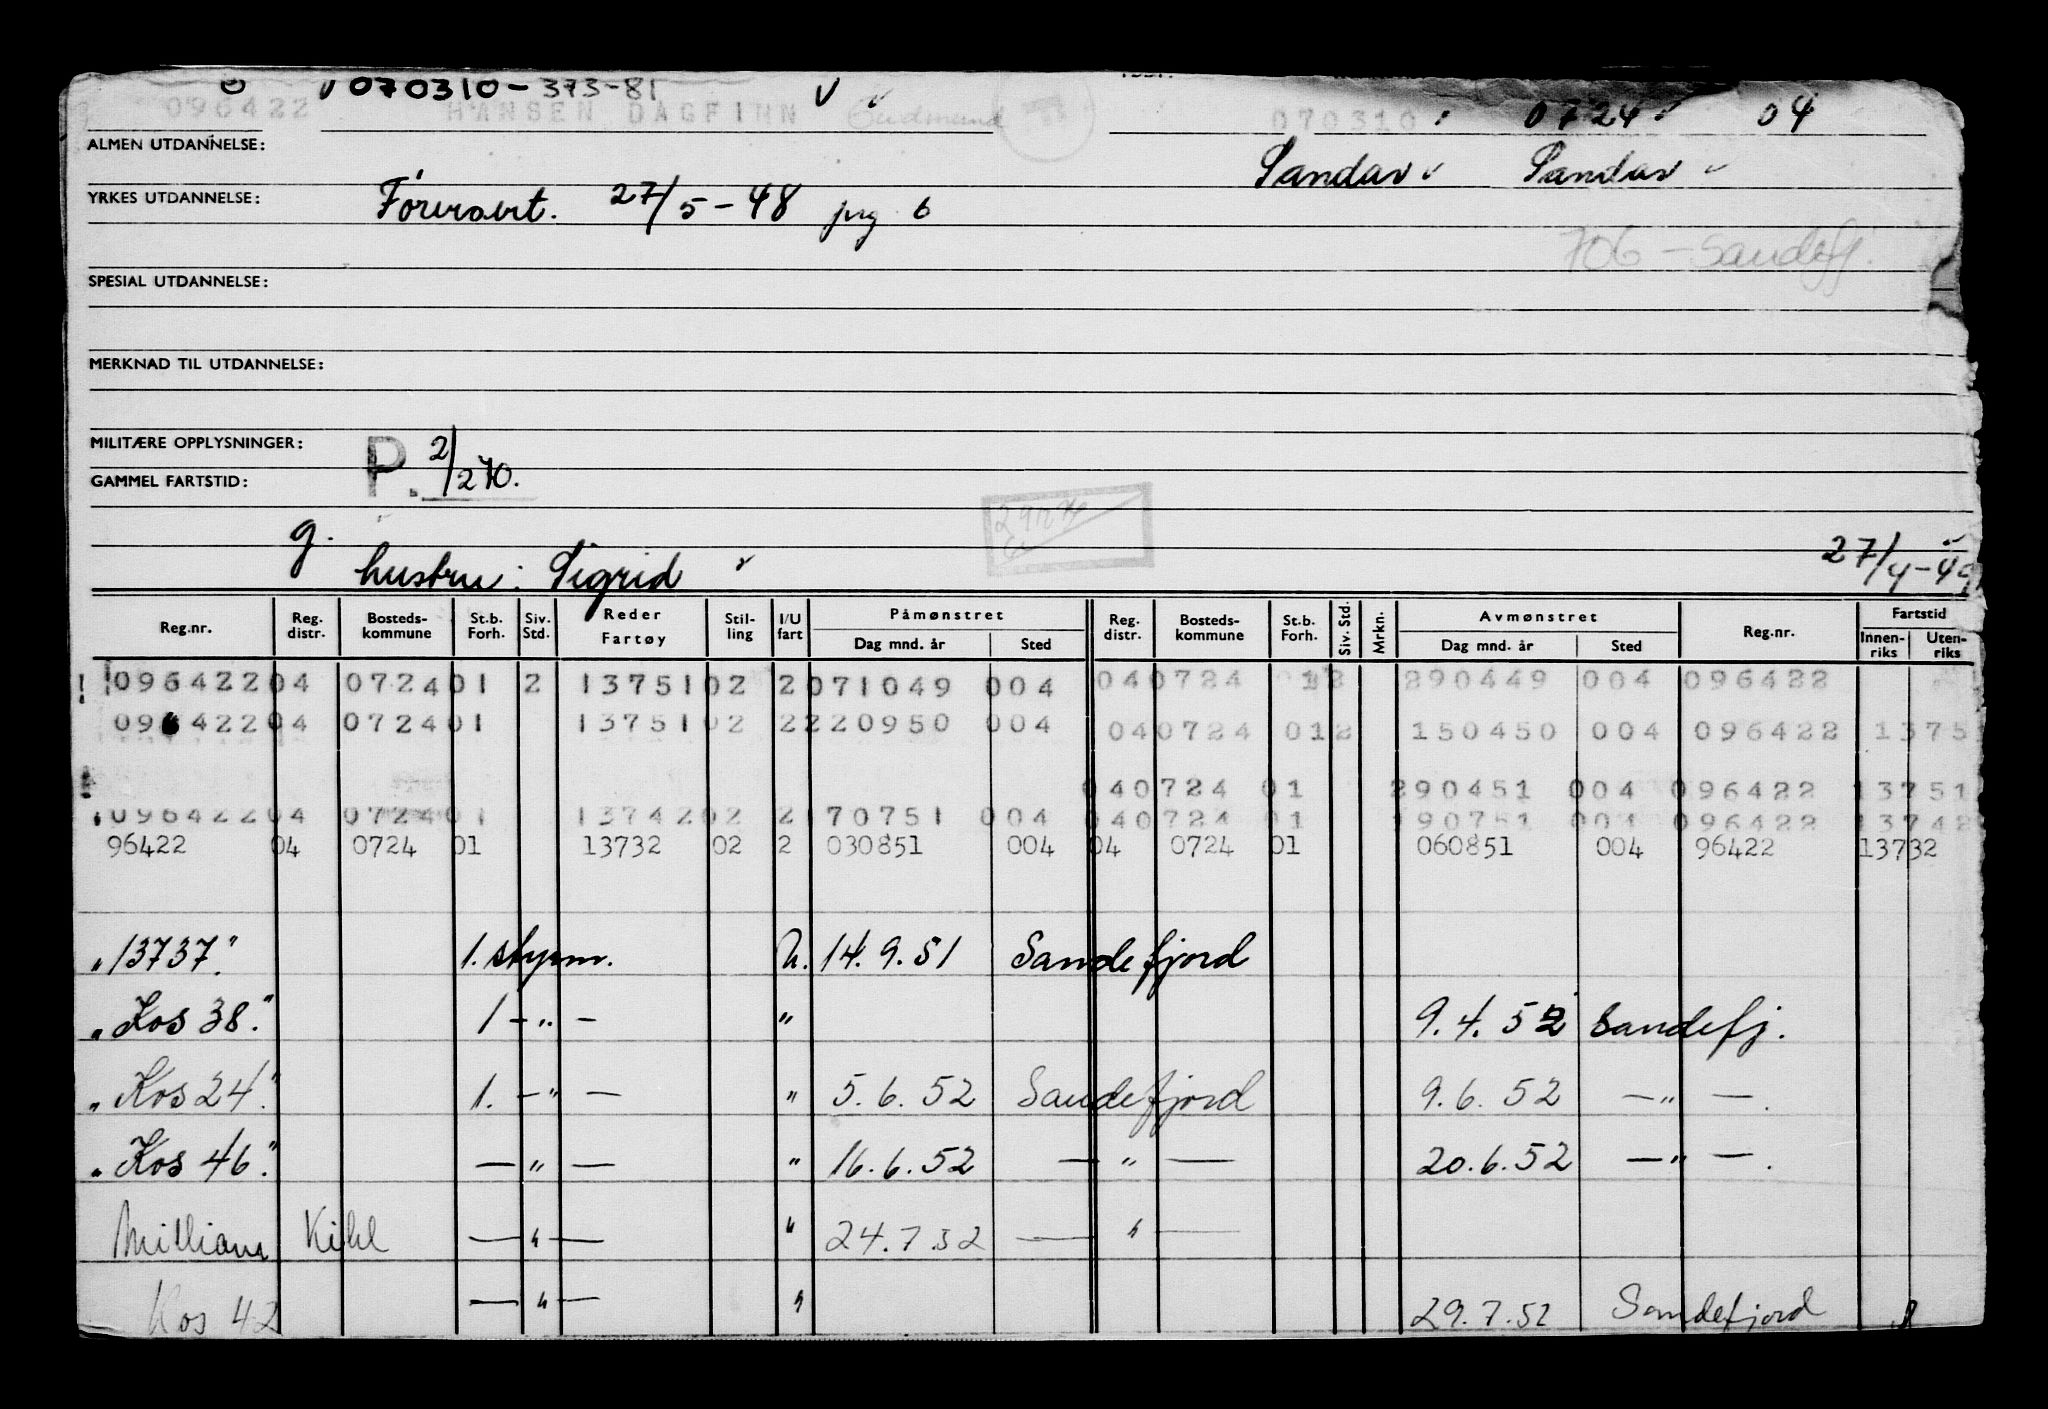 070310-373-81
096422 HANSEN DAGFINN Gudmund 070310 0724 04
ALMEN UTDANNELSE:
Sandar Sandar
YRKES UTDANNELSE: 27/5-48 prg 6
706 - Sandefj.
SPESIAL UTDANNELSE:
MERKNAD TIL UTDANNELSE:
MILITÆRE OPPLYSNINGER: P. 2/270.
GAMMEL FARTSTID:
g.
hustru: Sigrid 27/4-49
Reg.nr. Reg. distr. Bosteds-kommune St.b. Forh. Siv. Std. Reder Fartøy Stil-ling I/U fart Påmønstret Dag mnd. år Sted Reg. distr. Bosteds-kommune St.b. Forh. Siv. Std. Mrkn. Avmønstret Dag mnd. år Sted Reg.nr. Fartstid Innen-riks Uten-riks
096422 04 0724 01 2 13751 02 2 071049 004 04 0724 012 290449 004 096422
096422 04 0724 01 13751 02 2 220950 004 04 0724 012 150450 004 096422 1375
04 0724 01 290451 004 096422 13751
096422 04 0724 01 13742 02 2 170751 004 04 0724 01 190751 004 096422 13742
96422 04 0724 01 13732 02 2 030851 004 04 0724 01 060851 004 96422 13732
"13737" 1. styrm. U. 14.9.51 Sandefjord
"Kos 38." 1 - " - " 9.4.52 Sandefj.
"Kos 24." 1. - " - " 5.6.52 Sandefjord 9.6.52 - " - .
"Kos 46." - " - " 16.6.52 - " - 20.6.52 - " - .
William Kihl - " - " 24.7.52 - " -
Kos 42 - " - " 29.7.52 Sandefjord